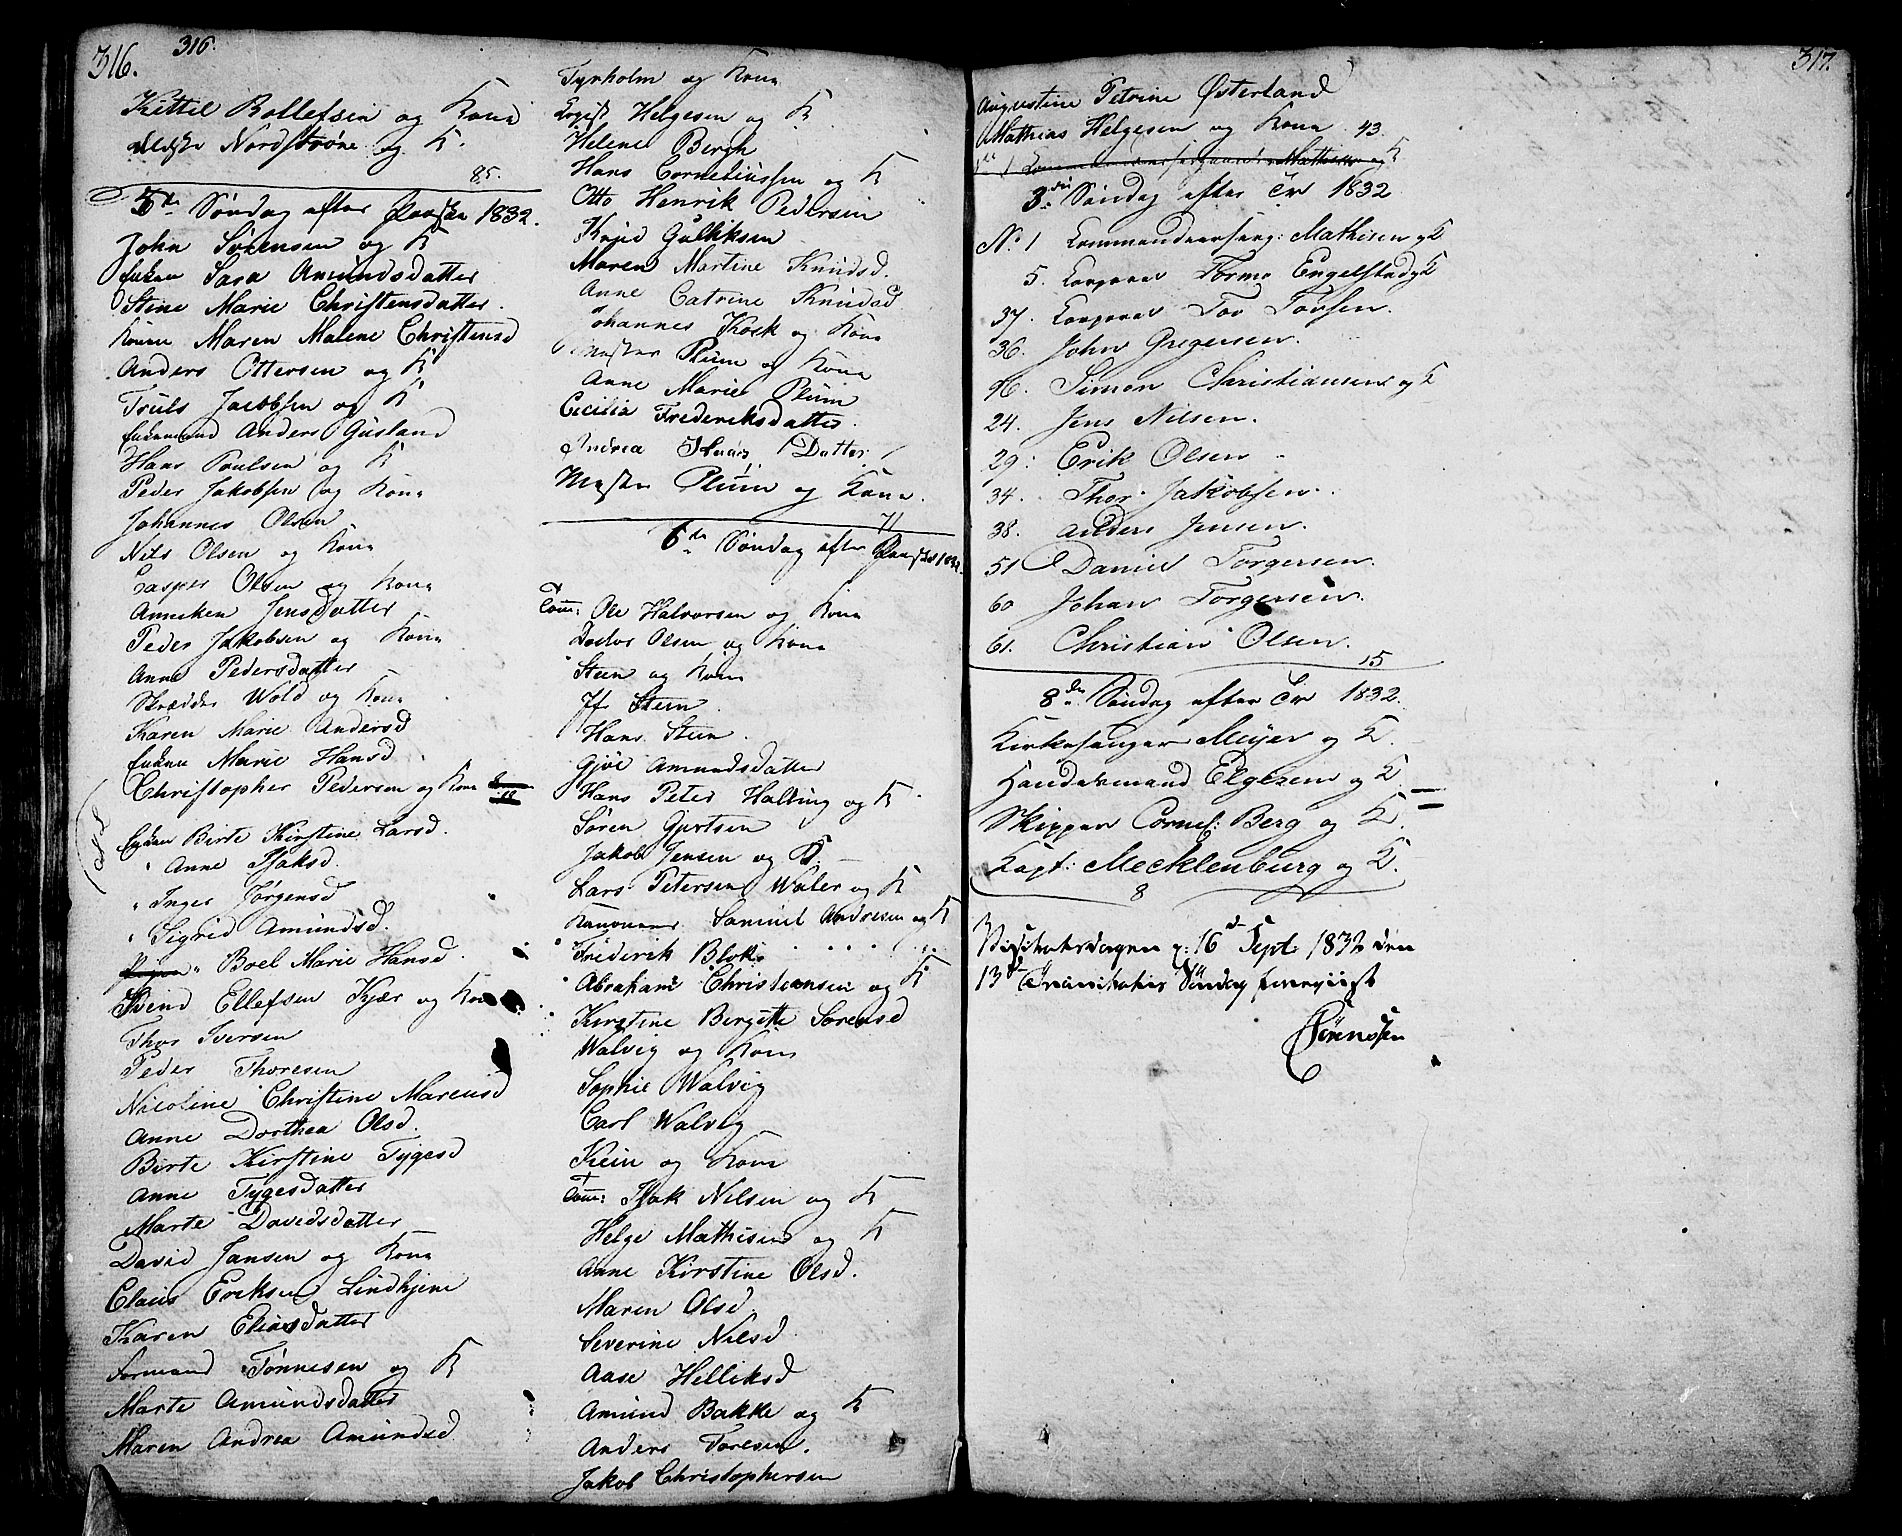 316.
316.
Kittil Rollefsen og Kone
Nordstrøne og K.
85.
5te Søndag efter Paaske 1832.
John Sørensen og K
Enken Sara Amundsdatter
Stine Marie Christensdatter.
Konen Maren Malene Christensd
Anders Ottersen og K
Truls Jacobsen og K
Enkemand Anders Gusland
Hans Poulsen og K
Peder Jakobsen og Kone
Johannes Olsen
Nils Olsen og Kone
Casper Olsen og Kone
Anneken Jensdatter
Peder Jakobsen og Kone
Anne Pedersdatter
Skrædder Wold og Kone
Karen Marie Andersd
Enken Marie Hansd.
Christopher Pedersen og Kone
Enken Birte Kirstine Larsd.
" Anne Isaksd.
" Inger Jørgensd
" Sigrid Amundsd.
" Boel Marie Hansd.
Svend Ellefsen Kjær og Kone
Thor Iversen
Peder Thoresen
Nicoline Christine Marcusd
Anne Dorthea Olsd.
Birte Kirstine Tygesd
Anne Tygesdatter
Marte Davidsdatter
David Jansen og Kone
Claus Eriksen Lindhjem
Karen Eliasdatter
Formand Tønnesen og K
Marte Amundsdatter
Maren Andrea Amundsd
Tyrholm og Kone
Helgesen og K
Helene Bergh
Hans Corneliussen og K
Otto Henrik Pedersen
Knud Gulliksen
Maren Martine Knudsd.
Anne Catrine Knudsd
Johannes Kock og Kone
Master Plum og Kone
Anne Marie Plum
Cecilia Frederiksdatter.
Andrea Datter
Master Plum og Kone.
71
6te Søndag efter Paaske 1832.
Com: Ole Halvorsen og Kone
Doctor Olsen og Kone
Steen og Kone
Jf Steen.
Hans Steen.
Gjøe Amundsdatter
Hans Peter Halling og K.
Søren Gjertsen
Jakob Jensen og K.
Lars Petersen Waler og K
Samuel Andresen og K
Frederik Blok
Abraham Christiansen og K
Kirstine Bergitte Sørensd
Walvig og Kone
Sophie Walvig
Carl Walvig
Klein og Kone
Com: Isak Nilsen og K
Helge Mathisen og K
Anne Kirstine Olsd.
Maren Olsd.
Severine Nilsd.
Aase Helliksd
Amund Bakke og K
Anders Toresen.
Jakob Christophersen
317.
Augustine Petrine Østerland
Mathias Helgesen og Kone 43.
3die Søndag efter Tr 1832
No. 1 Kommandeersserg: Mathisen og K
5. Korporal Tormo Engelstad og K
37. Korporal Tov Tovsen.
36. John Gregersen.
46. Simon Christiansen og K
24. Jens Nilsen.
29. Erik Olsen
34. Thor Jakobsen.
38. Anders Jensen.
51 Daniel Torgersen.
60 Johan Torgersen.
61. Christian Olsen.
15
8de Søndag efter Tr 1832.
Kirkesanger Meyer og K.
Handelsmand Elgesem og K
Skipper Cornel: Berg og K.
Kapt: Mecklenburg og K.
8
Visitatsdagen p: 16d Sept. 1832 den
13d Trinitatis Søndag foreviist
Sörenssen